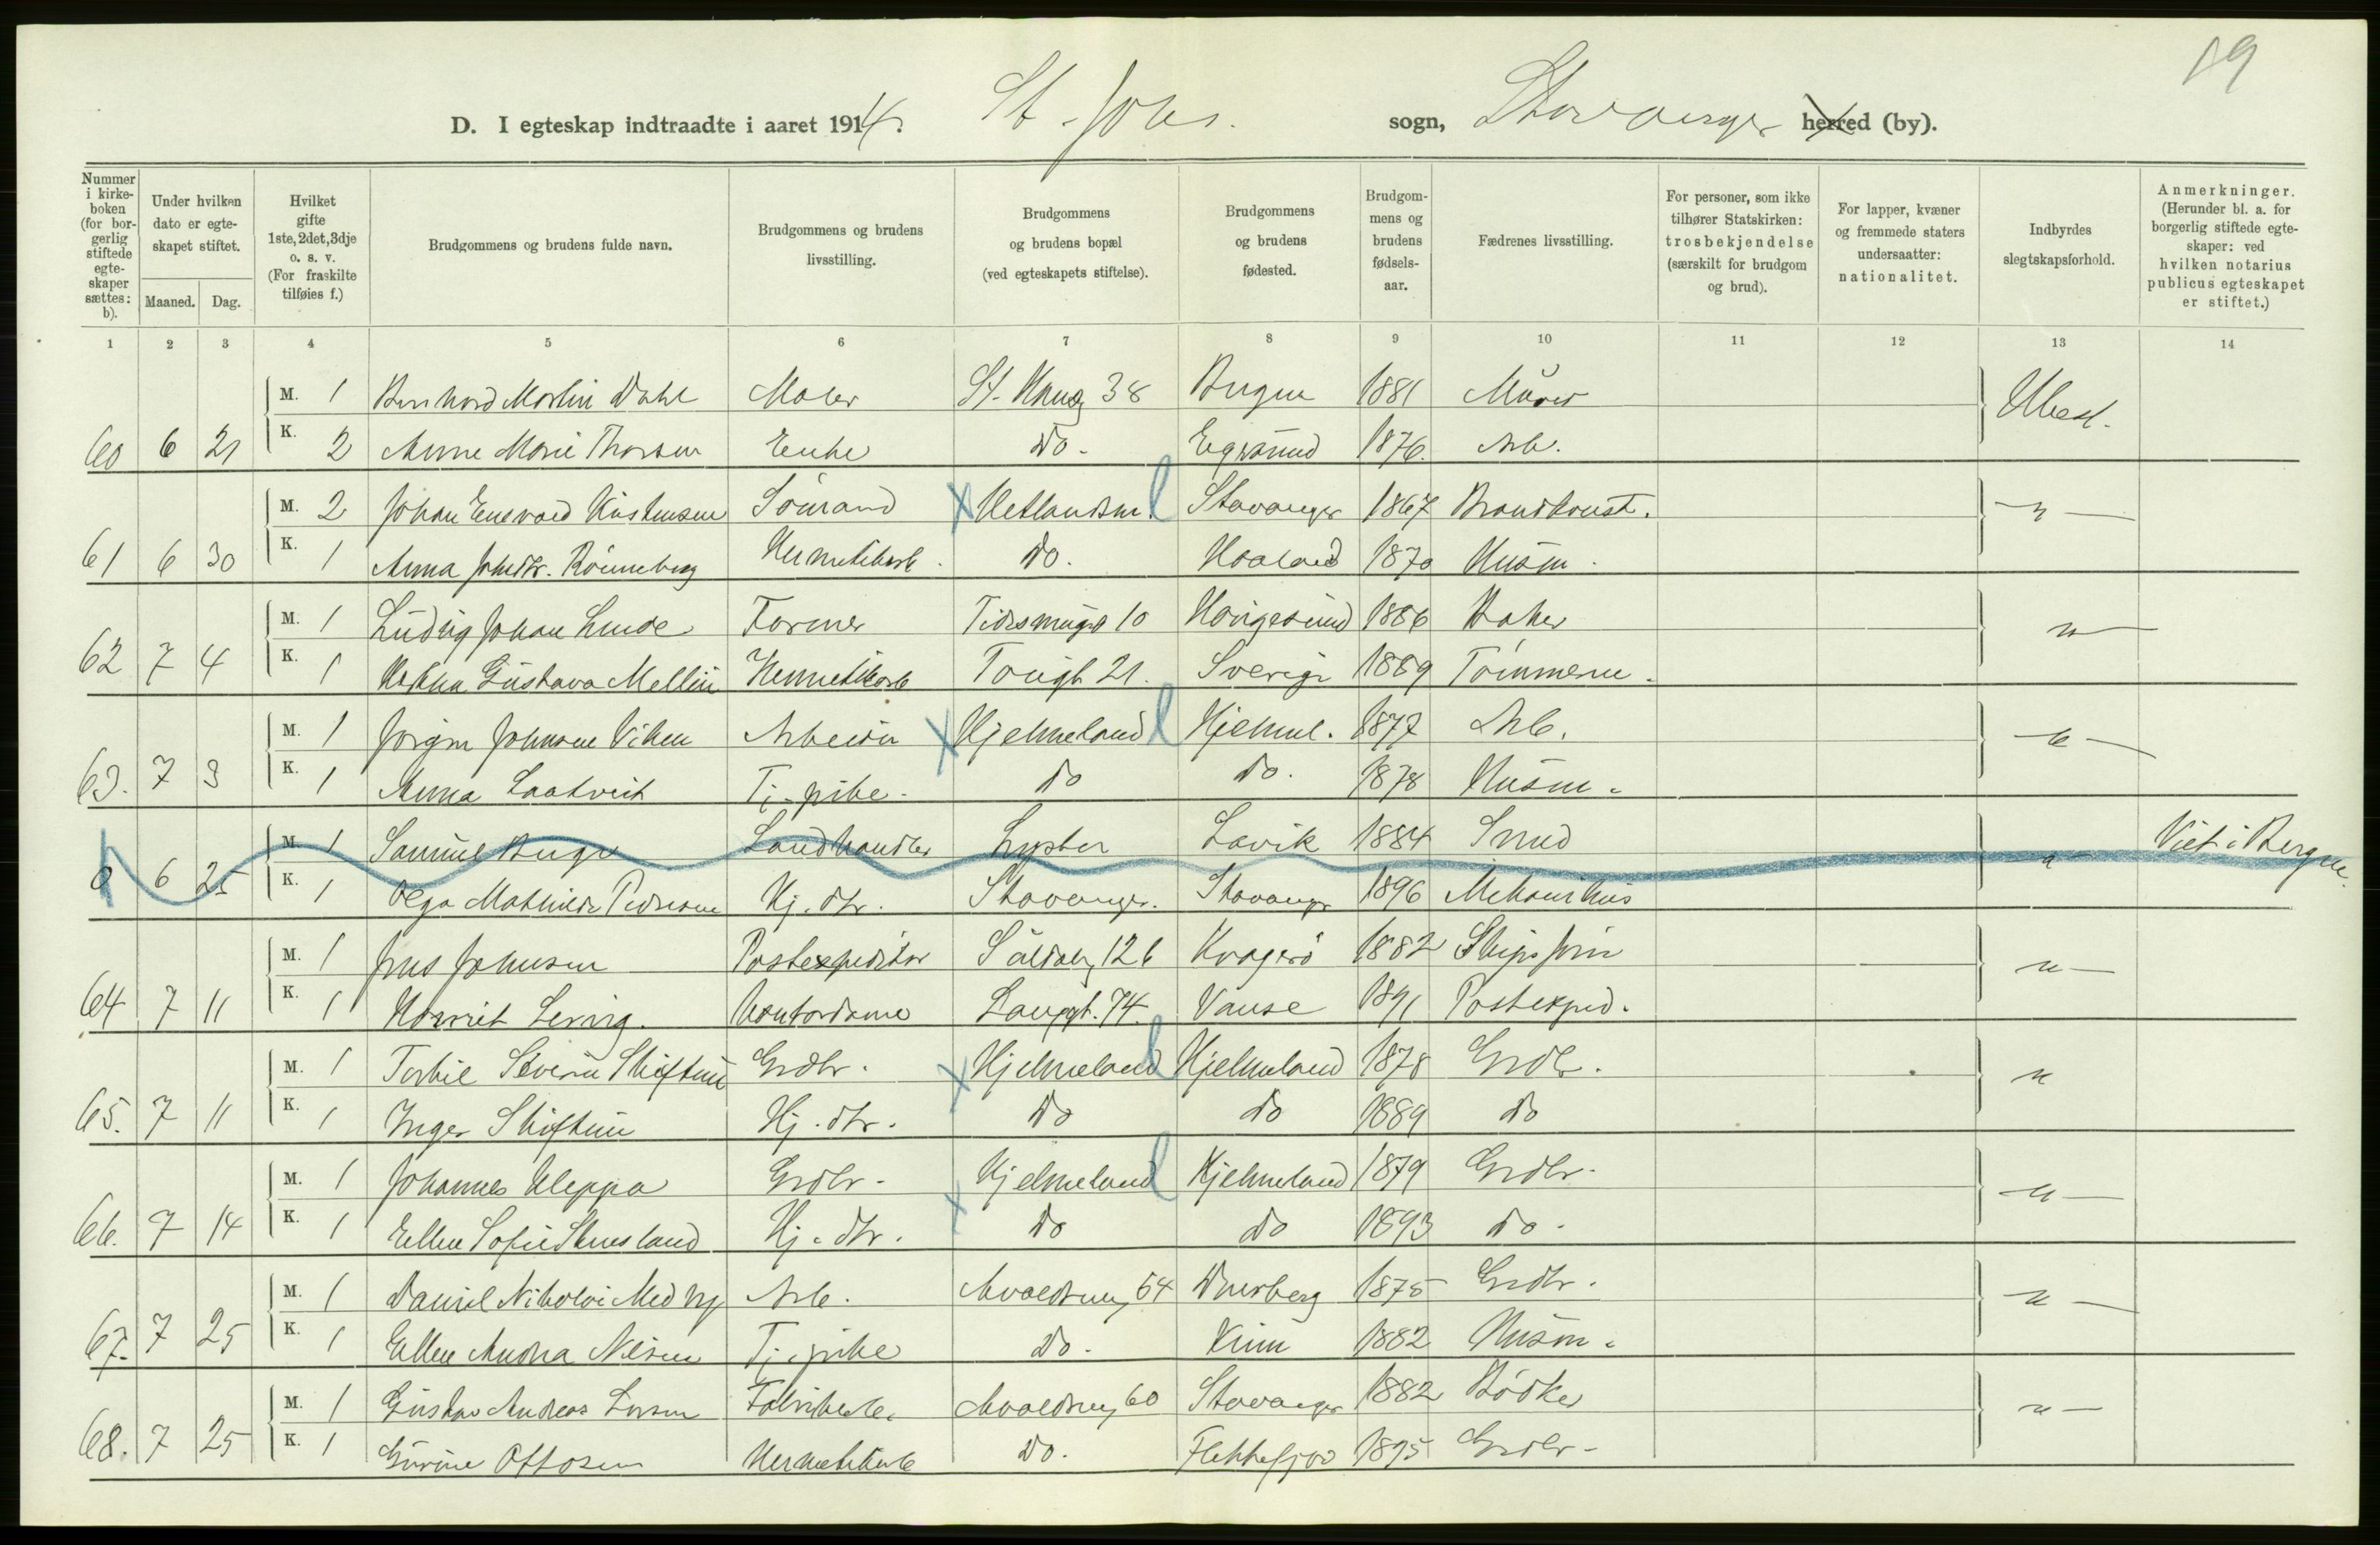 19
D. I egteskap indtraadte i aaret 1914. St. Johs. sogn, Stavanger herred (by).
Nummer i kirkeboken (for borgerlig stiftede egteskaper sættes: b).
Under hvilken dato er egteskapet stiftet.
Maaned. Dag.
Hvilket gifte 1ste, 2det, 3dje o. s. v. (For fraskilte tilføies f.)
Brudgommens og brudens fulde navn.
Brudgommens og brudens livsstilling.
Brudgommens og brudens bopæl (ved egteskapets stiftelse).
Brudgommens og brudens fødested.
Brudgommens og brudens fødselsaar.
Fædrenes livsstilling.
For personer, som ikke tilhører Statskirken: trosbekjendelse (særskilt for brudgom og brud).
For lapper, kvæner og fremmede staters undersaatter: nationalitet.
Indbyrdes slegtskapsforhold.
Anmerkninger. (Herunder bl. a. for borgerlig stiftede egteskaper: ved hvilken notarius publicus egteskapet er stiftet.)
1 2 3 4 5 6 7 8 9 10 11 12 13 14
M. 1 Bernhard Martin Dahl Maler St. Hansg 38 Bergen 1881 Murer Ubesl.
60 6 21 K. 2 Anne Marie Thorsen Enke Do. Egersund 1876. Arb.
M. 2 Johan Enevald Kristensen Sömand Hetlandsm. Stavanger 1867 Brandkonst. "
61 6 30 K. 1 Anna Johsdtr. Rönneberg Hermetikarb. Do. Haaland 1870 Husm.
M. 1 Ludvig Johan Lunde Former 10 Haugesund 1886 Baker "
62 7 4 K. 1 Gustava Mellin Hermetikarb 21. Sverige 1889 Tömmerm.
M. 1 Jörgen Johnsen Viken Arbeider Hjelmeland Hjelmel. 1877 Arb. "
63. 7 3 K. 1 Anna Laatveit Tj. pike. do do. 1878 Husm.
M. 1 Samuel Berge Landhandler Lyster Lavik 1884 Smed " Viet i Bergen.
0 6 25 K. 1 Olga Mathilde Pedersen Hj. dtr. Stavanger. Stavanger 1896 Mekanikus
M. 1 Jens Johnsen Postexpeditör 12 b Kragerö 1882 Skipsförer "
64 7 11 K. 1 Harriet Kontordame Langgt. 74. Vanse 1891 Postexped.
M. 1 Torkil Severin Skiftun Grdbr. Hjelmeland Hjelmeland 1878 Grdbr. "
65. 7 11 K. 1 Inger Skiftun Hj. dtr. Do do 1889 do
M. 1 Johannes Kleppa Grdbr. Hjelmeland Hjelmeland 1879 Grdbr. "
66. 7 14 K. 1 Ellen Sofie Hj. dtr. Do do 1893 do.
M. 1 Daniel Nikolai Arb. Avaldsnesg 54 1875 Grdbr. "
67. 7 25 K. 1 Ellen Andrea Nilsen Tj. pike Do. Kinn 1882 Husm.
M. 1 Gustav Andreas Larsen Fabrikarb. Avaldsnesg 60 Stavanger 1882 Bödker "
68. 7 25 K. 1 Gurine Ottosen Hermetikarb Do. Flekkefjord 1895 Grdbr.